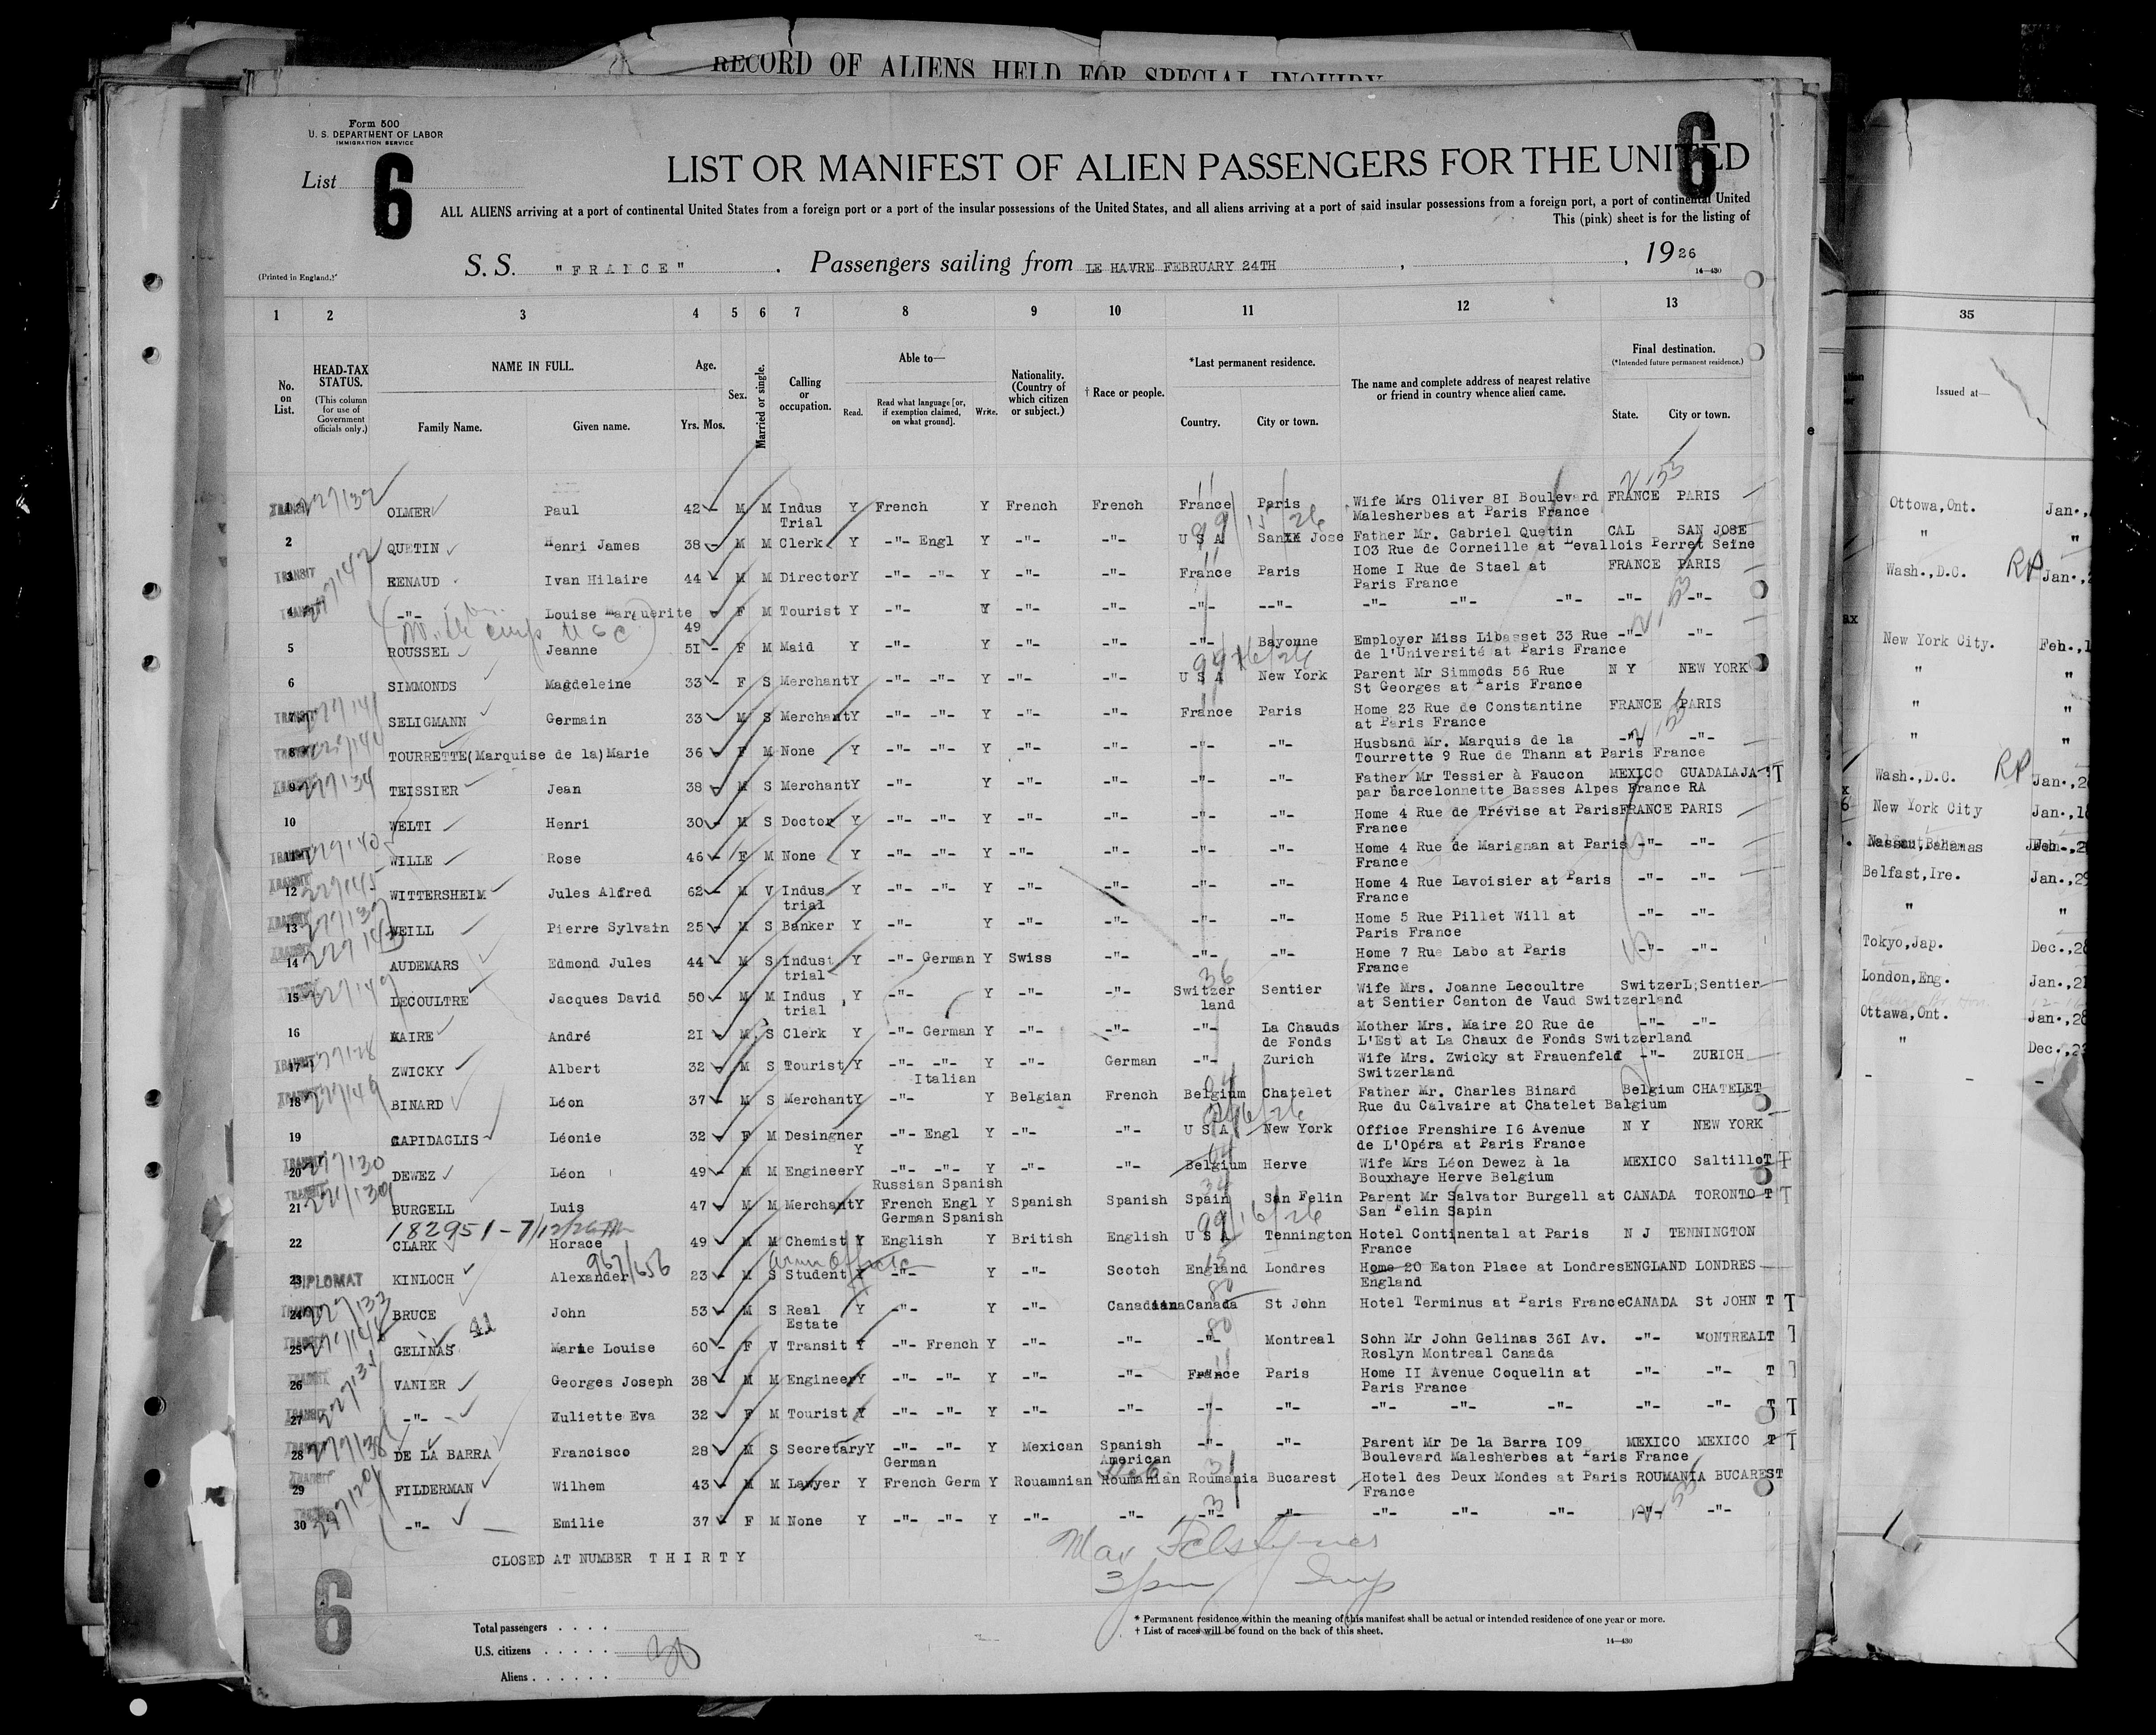 RECORD OF ALIENS HELD FOR SPECIAL INQUIRY
Form 500
U. S. DEPARTMENT OF LABOR
IMMIGRATION SERVICE
List 6
6
LIST OR MANIFEST OF ALIEN PASSENGERS FOR THE UNITED
ALL ALIENS arriving at a port of continental United States from a foreign port or a port of the insular possessions of the United States, and all aliens arriving at a port of said insular possessions from a foreign port, a port of continental United
This (pink) sheet is for the listing of
(Printed in England.)
S. S. "FRANCE" . Passengers sailing from LE HAVRE FEBRUARY 24TH , , 1926
14—430
1 2 3 4 5 6 7 8 9 10 11 12 13
No. on List.
HEAD-TAX STATUS. (This column for use of Government officials only.)
NAME IN FULL. Family Name. Given name.
Age. Yrs. Mos.
Sex.
Married or single.
Calling or occupation.
Able to— Read. Read what language [or, if exemption claimed, on what ground]. Write.
Nationality. (Country of which citizen or subject.)
† Race or people.
*Last permanent residence. Country. City or town.
The name and complete address of nearest relative or friend in country whence alien came.
Final destination. (*Intended future permanent residence.) State. City or town.
TRANSIT 227132 OLMER Paul 42 - M M Indus Y French Y French French France Paris Wife Mrs Oliver 8I Boulevard FRANCE PARIS
Trial Malesherbes at Paris France
2 QUETIN Henri James 38 - M M Clerk Y -"- Engl Y -"- -"- U S A San Jose Father Mr. Gabriel Quetin CAL SAN JOSE
I03 Rue de Corneille at Levallois Perret Seine
TRANSIT 3 RENAUD Ivan Hilaire 44 - M M Director Y -"- -"- Y -"- -"- France Paris Home I Rue de Stael at FRANCE PARIS
Paris France
4 -"- Louise Marguerite F M Tourist Y -"- Y -"- -"- -"- --"- -"- -"- -"- -"- -"-
49
5 ROUSSEL Jeanne 5I - F M Maid Y -"- Y -"- -"- -"- Bayonne Employer Miss Libasset 33 Rue -"- -"-
de l'Université at Paris France
6 SIMMONDS Magdeleine 33 - F S Merchant Y -"- -"- Y -"- -"- U S A New York Parent Mr Simmods 56 Rue N Y NEW YORK
St Georges at Paris France
7 SELIGMANN Germain 33 - M S Merchant Y -"- -"- Y -"- -"- France Paris Home 23 Rue de Constantine FRANCE PARIS
at Paris France
8 TOURRETTE(Marquise de la)Marie 36 - F M None Y -"- -"- Y -"- -"- -"- -"- Husband Mr. Marquis de la -"- -"-
Tourrette 9 Rue de Thann at Paris France
9 227134 TEISSIER Jean 38 M S Merchant Y -"- Y -"- -"- -"- -"- Father Mr Tessier à Faucon MEXICO GUADALAJA T
par Barcelonnette Basses Alpes France RA
10 WELTI Henri 30 - M S Doctor Y -"- -"- Y -"- -"- -"- -"- Home 4 Rue de Trévise at Paris FRANCE PARIS
France
227140 WILLE Rose 46 - F M None Y -"- -"- Y -"- -"- -"- -"- Home 4 Rue de Marignan at Paris -"- -"-
France
12 227145 WITTERSHEIM Jules Alfred 62 - M V Indus Y -"- -"- Y -"- -"- -"- -"- Home 4 Rue Lavoisier at Paris -"- -"-
trial France
13 WEILL Pierre Sylvain 25 - M S Banker Y -"- Y -"- -"- -"- -"- Home 5 Rue Pillet Will at -"- -"-
Paris France
14 AUDEMARS Edmond Jules 44 - M S Indust Y -"- German Y Swiss -"- -"- -"- Home 7 Rue Labo at Paris -"- -"-
trial France
15 LECOULTRE Jacques David 50 - M M Indus Y -"- Y -"- -"- Switzer Sentier Wife Mrs. Joanne Lecoultre SwitzerL; Sentier
trial land at Sentier Canton de Vaud Switzerland
16 MAIRE André 2I M S Clerk Y -"- German Y -"- -"- -"- La Chauds Mother Mrs. Maire 20 Rue de -"- -"-
de Fonds L'Est at La Chaux de Fonds Switzerland
17 ZWICKY Albert 32 M S Tourist Y -"- -"- Y -"- German -"- Zurich Wife Mrs. Zwicky at Frauenfeld -"- ZURICH
Italian Switzerland
18 BINARD Léon 37 - M S Merchant Y -"- Y Belgian French Belgium Chatelet Father Mr. Charles Binard Belgium CHATELET
Rue du Calvaire at Chatelet Balgium
19 CAPIDAGLIS Léonie 32 F M Desingner -"- Engl Y -"- -"- U S A New York Office Frenshire I6 Avenue N Y NEW YORK
Y de L'Opéra at Paris France
20 227130 DEWEZ Léon 49 - M M Engineer Y -"- -"- Y -"- -"- Belgium Herve Wife Mrs Léon Dewez à la MEXICO Saltillo T T
Russian Spanish Bouxhaye Herve Belgium
21 BURGELL Luis 47 M M Merchant Y French Engl Y Spanish Spanish Spain San Felin Parent Mr Salvator Burgell at CANADA TORONTO T T
German Spanish San Felin Sapin
182951-
22 CLARK Horace 49 M M Chemist Y English Y British English U S A Tennington Hotel Continental at Paris N J TENNINGTON
France
967/656
23 DIPLOMAT KINLOCH Alexander 23 - M S Student Y -"- Y -"- Scotch England Londres Home 20 Eaton Place at Londres ENGLAND LONDRES
England
24 227133 BRUCE John 53 M S Real Y -"- Y -"- Canadian Canada St John Hotel Terminus at Paris France CANADA St JOHN T T
Estate
25 GELINAS Marie Louise 60 - F V Transit Y -"- French Y -"- -"- -"- Montreal Sohn Mr John Gelinas 36I Av. -"- MONTREAL T
Roslyn Montreal Canada
26 VANIER Georges Joseph 38 - M M Engineer Y -"- -"- Y -"- -"- France Paris Home II Avenue Coquelin at -"- -"- T
Paris France
27 -"- Wuliette Eva 32 F M Tourist Y -"- -"- Y -"- -"- -"- -"- -"- -"- -"- -"- -"- T T
28 227138 DE LA BARRA Francisco 28 M S Secretary Y -"- -"- Y Mexican Spanish -"- -"- Parent Mr De la Barra I09 MEXICO MEXICO T T
German American Boulevard Malesherbes at Paris France
29 FILDERMAN Wilhem 43 M M Lawyer Y French Germ Y Rouamnian Roumanian Roumania Bucarest Hotel des Deux Mondes at Paris ROUMANIA BUCAREST
France
30 -"- Emilie 37 F M None Y -"- -"- Y -"- -"- -"- -"- -"- -"- -"- -"- -"-
CLOSED AT NUMBER T H I R T Y
6
Total passengers . . . .
U.S. citizens . . . . .
30
Aliens . . . . . .
* Permanent residence within the meaning of this manifest shall be actual or intended residence of one year or more.
† List of races will be found on the back of this sheet.
14—430
35
Issued at—
Ottowa,Ont. Jan.,
" "
Wash.,D.C. RP Jan.,
New York City. Feb.,1
" "
" "
" "
Wash.,D.C. RP Jan.,2
New York City Jan.,18
Nassau,Bahamas
Belfast,Ire. Jan.,29
" "
Tokyo,Jap. Dec.,28
London,Eng. Jan.,2
Ottawa,Ont. Jan.,28
" Dec.,23
- - -